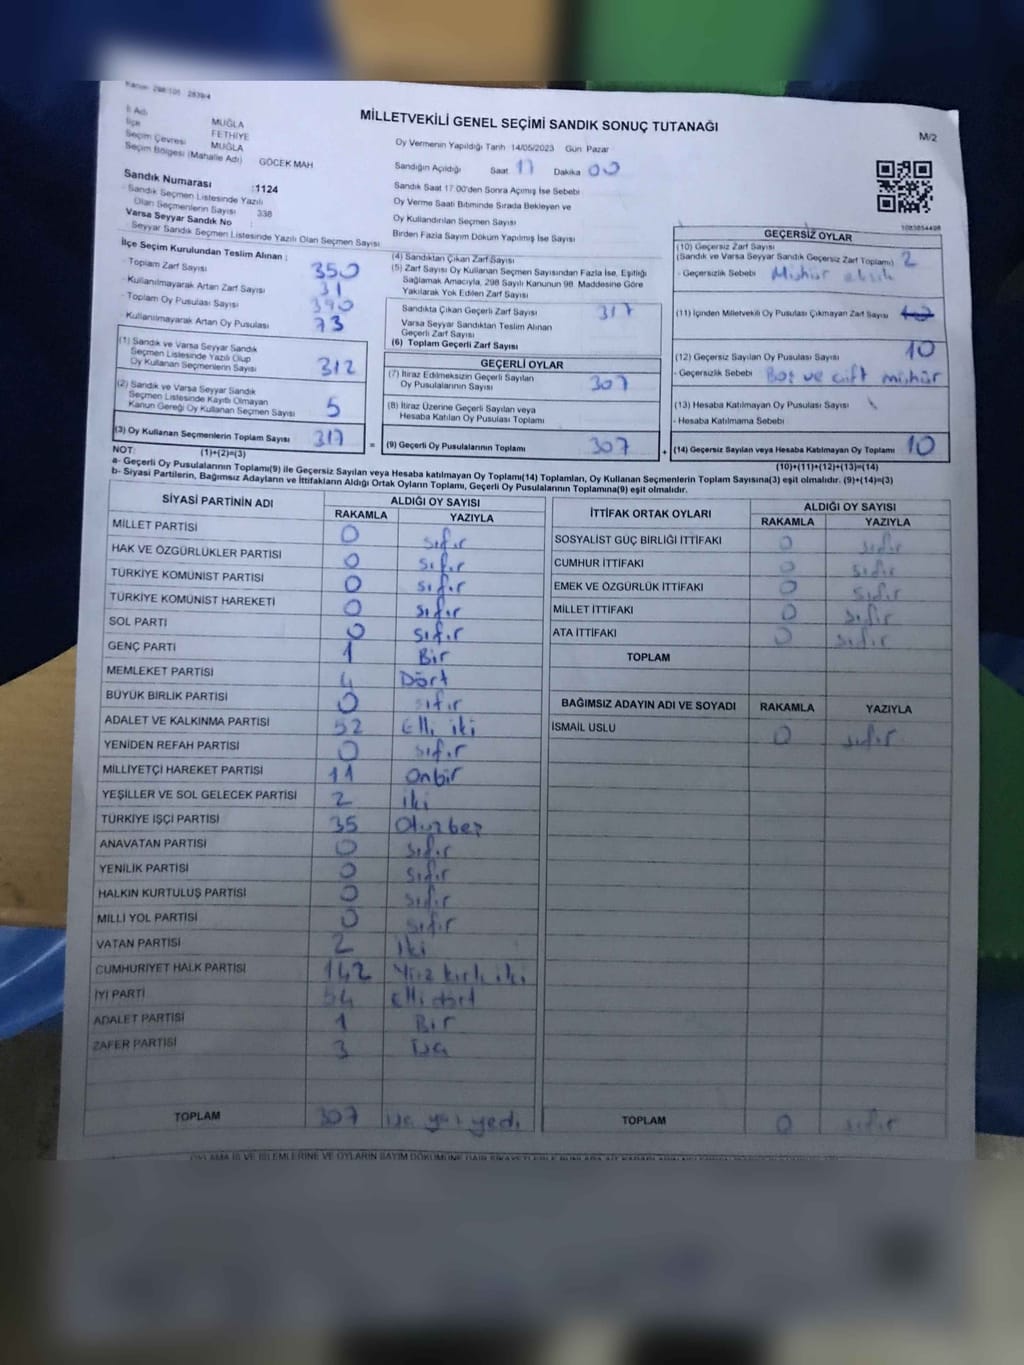 Kanun: 298/105 2839/4
MİLLETVEKİLİ GENEL SEÇİMİ SANDIK SONUÇ TUTANAĞI
M/2
İl Adı MUĞLA
İlçe FETHİYE
Seçim Çevresi MUĞLA
Seçim Bölgesi (Mahalle Adı) GÖCEK MAH
Sandık Numarası :1124
- Sandık Seçmen Listesinde Yazılı
Olan Seçmenlerin Sayısı 338
Varsa Seyyar Sandık No
Seyyar Sandık Seçmen Listesinde Yazılı Olan Seçmen Sayısı
Oy Vermenin Yapıldığı Tarih 14/05/2023 Gün Pazar
Sandığın Açıldığı Saat 17 Dakika 00
Sandık Saat 17.00'den Sonra Açımış İse Sebebi
Oy Verme Saati Bitiminde Sırada Bekleyen ve
Oy Kullandırılan Seçmen Sayısı
Birden Fazla Sayım Döküm Yapılmış İse Sayısı
1083854498
İlçe Seçim Kurulundan Teslim Alınan :
- Toplam Zarf Sayısı 350
- Kullanılmayarak Artan Zarf Sayısı 31
- Toplam Oy Pusulası Sayısı 390
- Kullanılmayarak Artan Oy Pusulası 73
(1) Sandık ve Varsa Seyyar Sandık
Seçmen Listesinde Yazılı Olup
Oy Kullanan Seçmenlerin Sayısı 312
(2) Sandık ve Varsa Seyyar Sandık
Seçmen Listesinde Kayıtlı Olmayan
Kanun Gereği Oy Kullanan Seçmen Sayısı 5
(3) Oy Kullanan Seçmenlerin Toplam Sayısı 317
(1)+(2)=(3)
(4) Sandıktan Çıkan Zarf Sayısı
(5) Zarf Sayısı Oy Kullanan Seçmen Sayısından Fazla İse, Eşitliği
Sağlamak Amacıyla, 298 Sayılı Kanunun 98. Maddesine Göre
Yakılarak Yok Edilen Zarf Sayısı
Sandıkta Çıkan Geçerli Zarf Sayısı 317
Varsa Seyyar Sandıktan Teslim Alınan
Geçerli Zarf Sayısı
(6) Toplam Geçerli Zarf Sayısı
GEÇERLİ OYLAR
(7) İtiraz Edilmeksizin Geçerli Sayılan
Oy Pusulalarının Sayısı 307
(8) İtiraz Üzerine Geçerli Sayılan veya
Hesaba Katılan Oy Pusulası Toplamı
= (9) Geçerli Oy Pusulalarının Toplamı 307
GEÇERSİZ OYLAR
(10) Geçersiz Zarf Sayısı
(Sandık ve Varsa Seyyar Sandık Geçersiz Zarf Toplamı) 2
- Geçersizlik Sebebi Mühür eksik
(11) İçinden Milletvekili Oy Pusulası Çıkmayan Zarf Sayısı
(12) Geçersiz Sayılan Oy Pusulası Sayısı 10
- Geçersizlik Sebebi Boş ve çift mühür
(13) Hesaba Katılmayan Oy Pusulası Sayısı
- Hesaba Katılmama Sebebi
+ (14) Geçersiz Sayılan veya Hesaba Katılmayan Oy Toplamı 10
(10)+(11)+(12)+(13)=(14)
NOT:
a- Geçerli Oy Pusulalarının Toplamı(9) ile Geçersiz Sayılan veya Hesaba katılmayan Oy Toplamı(14) Toplamları, Oy Kullanan Seçmenlerin Toplam Sayısına(3) eşit olmalıdır. (9)+(14)=(3)
b- Siyasi Partilerin, Bağımsız Adayların ve İttifakların Aldığı Ortak Oyların Toplamı, Geçerli Oy Pusulalarının Toplamına(9) eşit olmalıdır.
SİYASİ PARTİNİN ADI ALDIĞI OY SAYISI
RAKAMLA YAZIYLA
MİLLET PARTİSİ 0 sıfır
HAK VE ÖZGÜRLÜKLER PARTİSİ 0 sıfır
TÜRKİYE KOMÜNİST PARTİSİ 0 sıfır
TÜRKİYE KOMÜNİST HAREKETİ 0 sıfır
SOL PARTİ 0 sıfır
GENÇ PARTİ 1 Bir
MEMLEKET PARTİSİ 4 Dört
BÜYÜK BİRLİK PARTİSİ 0 sıfır
ADALET VE KALKINMA PARTİSİ 52 Elli iki
YENİDEN REFAH PARTİSİ 0 sıfır
MİLLİYETÇİ HAREKET PARTİSİ 11 Onbir
YEŞİLLER VE SOL GELECEK PARTİSİ 2 iki
TÜRKİYE İŞÇİ PARTİSİ 35 Otuzbeş
ANAVATAN PARTİSİ 0 sıfır
YENİLİK PARTİSİ 0 sıfır
HALKIN KURTULUŞ PARTİSİ 0 sıfır
MİLLİ YOL PARTİSİ 0 sıfır
VATAN PARTİSİ 2 iki
CUMHURİYET HALK PARTİSİ 142 Yüz kırk iki
İYİ PARTİ 54 Elli dört
ADALET PARTİSİ 1 Bir
ZAFER PARTİSİ 3 Üç
TOPLAM 307 Üç yüz yedi
İTTİFAK ORTAK OYLARI ALDIĞI OY SAYISI
RAKAMLA YAZIYLA
SOSYALİST GÜÇ BİRLİĞİ İTTİFAKI 0 sıfır
CUMHUR İTTİFAKI 0 sıfır
EMEK VE ÖZGÜRLÜK İTTİFAKI 0 sıfır
MİLLET İTTİFAKI 0 sıfır
ATA İTTİFAKI 0 sıfır
TOPLAM
BAĞIMSIZ ADAYIN ADI VE SOYADI RAKAMLA YAZIYLA
İSMAİL USLU 0 sıfır
TOPLAM 0 sıfır